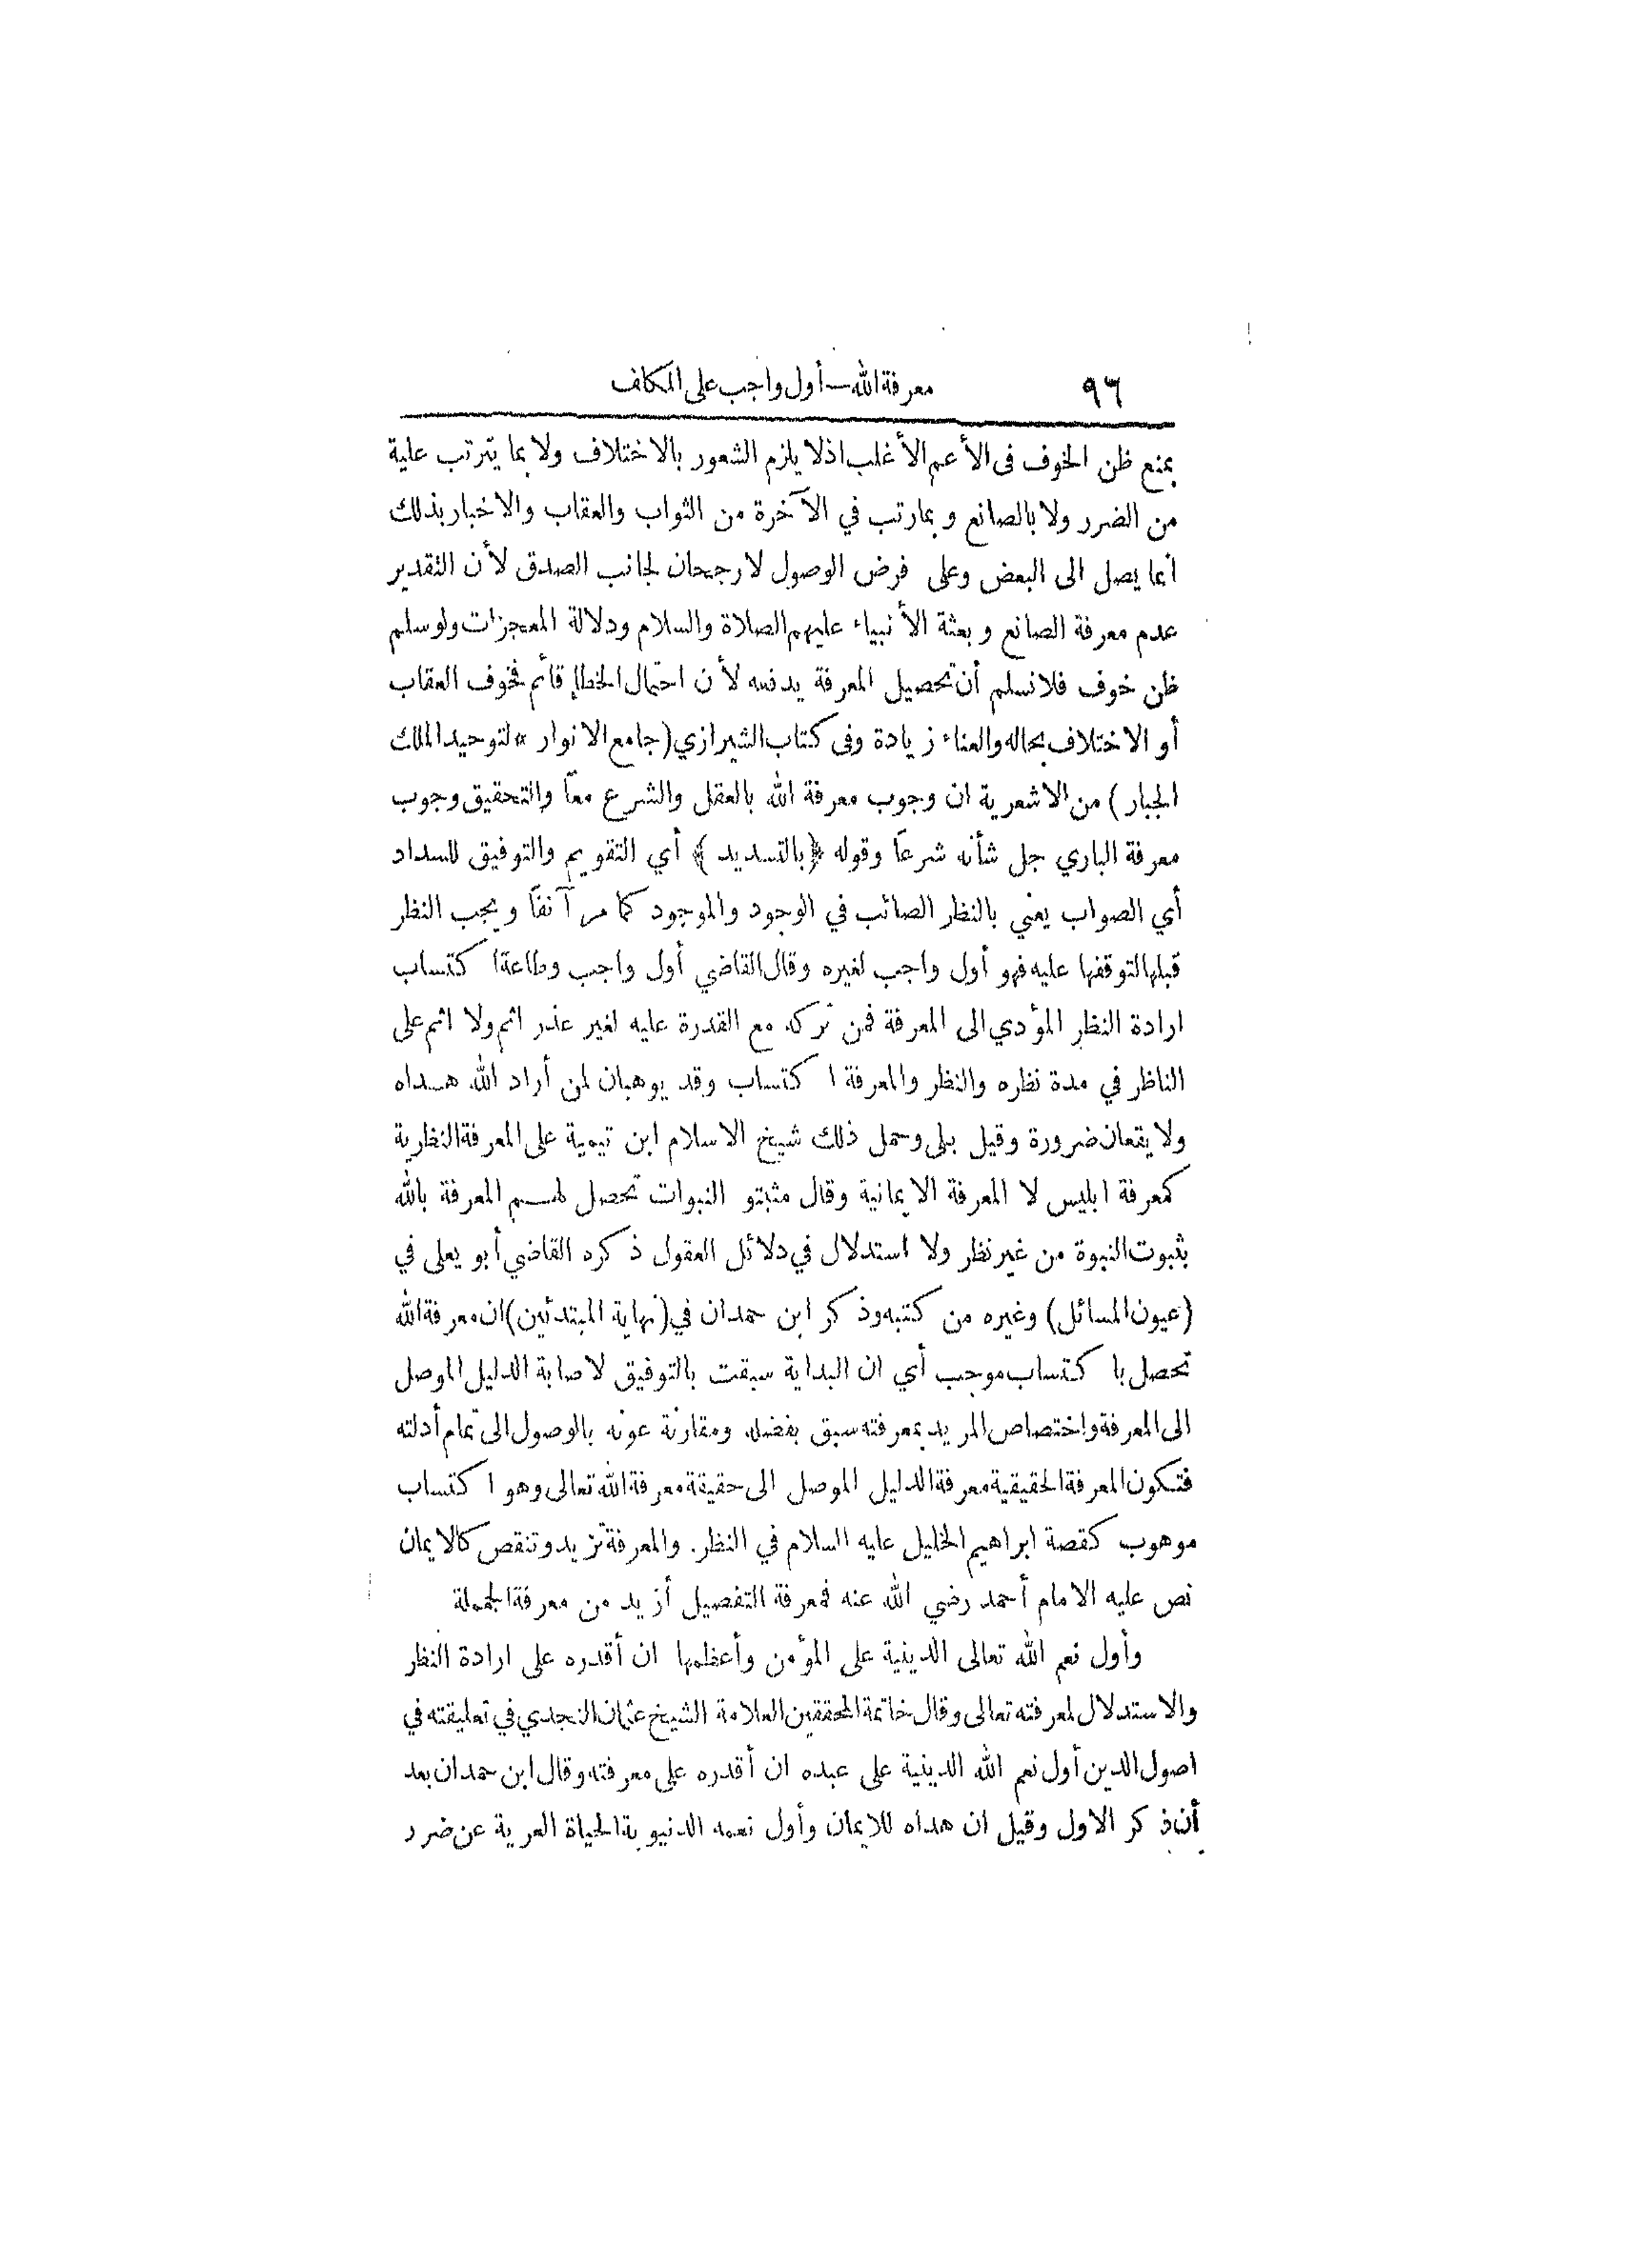 ٩٦ معرفة الله — أول واجب على المكلف
بمنع ظن الخوف فى الأعم الأغلب اذ لا يلزم الشعور بالاختلاف ولا بما يترتب علية
من الضرر ولا بالصانع و بما رتب في الآخرة من الثواب والعقاب والاخبار بذلك
انما يصل الى البعض وعلى فرض الوصول لا رجحان لجانب الصدق لأن التقدير
عدم معرفة الصانع و بعثة الأنبياء عليهم الصلاة والسلام ودلالة المعجزات ولو سلم
ظن خوف فلا نسلم أن تحصيل المعرفة يدفعه لأن احتمال الخطإ قائم فخوف العقاب
أو الاختلاف بحاله والعناء زيادة وفى كتاب الشيرازي (جامع الانوار * لتوحيد الملك
الجبار) من الاشعرية ان وجوب معرفة الله بالعقل والشرع معاً والتحقيق وجوب
معرفة الباري جل شأنه شرعاً وقوله ﴿بالتسديد﴾ أي التقويم والتوفيق للسداد
أي الصواب يعني بالنظر الصائب في الوجود والموجود كما مر آنفاً ويجب النظر
قبلها لتوقفها عليه فهو أول واجب لغيره وقال القاضي أول واجب وطاعة اكتساب
ارادة النظر المؤدي الى المعرفة فمن تركه مع القدرة عليه لغير عذر اثم ولا اثم على
الناظر في مدة نظره والنظر والمعرفة اكتساب وقد يوهبان لمن أراد الله هداه
ولا يقعان ضرورة وقيل بلى وحمل ذلك شيخ الاسلام ابن تيمية على المعرفة النظرية
كمعرفة ابليس لا المعرفة الايمانية وقال مثبتو النبوات تحصل لهم المعرفة بالله
بثبوت النبوة من غير نظر ولا استدلال في دلائل العقول ذكره القاضي أبو يعلى في
(عيون المسائل) وغيره من كتبه وذكر ابن حمدان في (نهاية المبتدئين) ان معرفة الله
تحصل باكتساب موجب أي ان البداية سبقت بالتوفيق لاصابة الدليل الموصل
الى المعرفة واختصاص المريد بمعرفته سبق بفضله ومقارنة عونه بالوصول الى تمام أدلته
فتكون المعرفة الحقيقية معرفة الدليل الموصل الى حقيقة معرفة الله تعالى وهو اكتساب
موهوب كقصة ابراهيم الخليل عليه السلام في النظر. والمعرفة تزيد وتنقص كالايمان
نص عليه الامام أحمد رضي الله عنه فمعرفة التفصيل أزيد من معرفة الجملة
وأول نعم الله تعالى الدينية على المؤمن وأعظمها ان أقدره على ارادة النظر
والاستدلال لمعرفته تعالى وقال خاتمة المحققين العلامة الشيخ عثمان النجدي في تعليقته في
اصول الدين أول نعم الله الدينية على عبده ان أقدره على معرفته وقال ابن حمدان بعد
أن ذكر الاول وقيل ان هداه للايمان وأول نعمه الدنيوية الحياة العرية عن ضرر